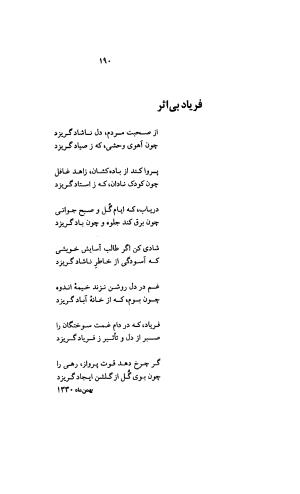 ۱۹۰
فریاد بی‌اثر
از صحبت مردم، دل ناشاد گریزد
چون آهوی وحشی، که ز صیاد گریزد
پروا کند از باده‌کشان، زاهد غافل
چون کودک نادان، که ز استاد گریزد
دریاب، که ایام گل و صبح جوانی
چون برق کند جلوه و چون باد گریزد
شادی کن اگر طالب آسایش خویشی
که آسودگی از خاطر ناشاد گریزد
غم در دل روشن نزند خیمهٔ اندوه
چون بوم، که از خانهٔ آباد گریزد
فریاد، که در دام غمت سوختگان را
صبر از دل و تأثیر ز فریاد گریزد
گر چرخ دهد قوت پرواز، رهی را
چون بوی گُل از گلشن ایجاد گریزد
بهمن‌ماه ۱۳۳۰